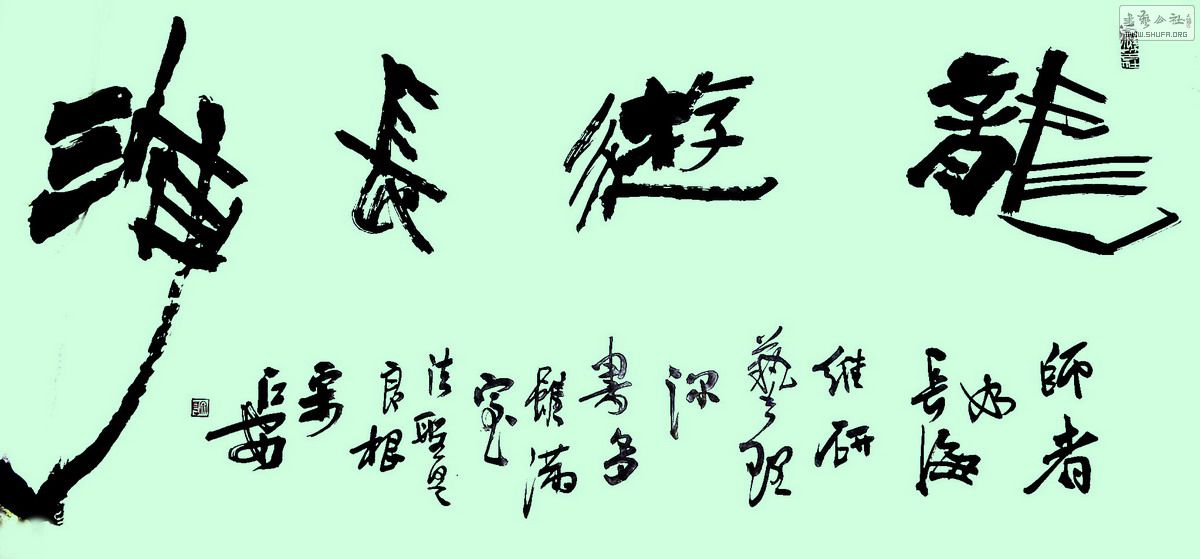 龍遊長海
師者
如
長海
維研
藝理
深
書多
雖滿
室
法聖是
良根
書艺公社
WWW.SHUFA.ORG